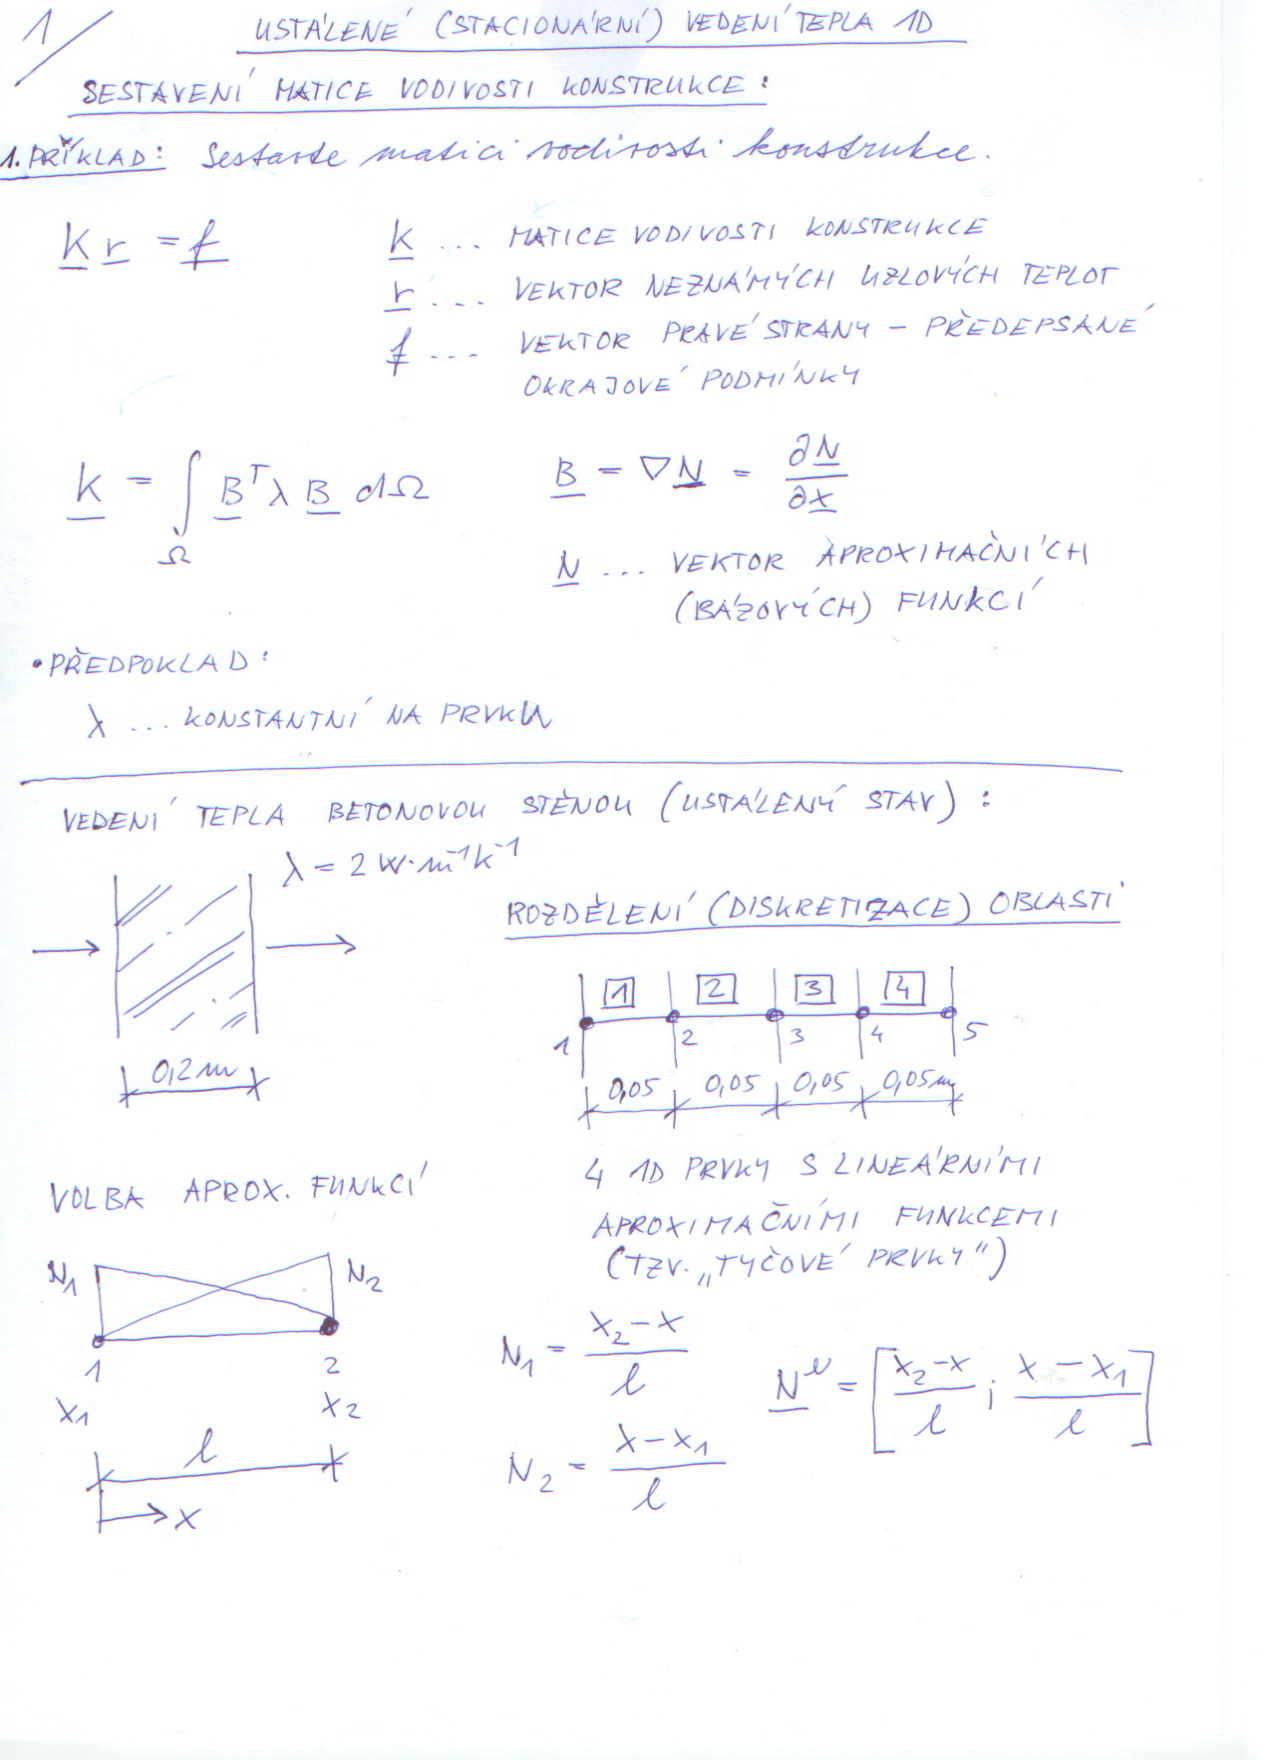 1/
USTÁLENÉ (STACIONÁRNÍ) VEDENÍ TEPLA 1D
SESTAVENÍ MATICE VODIVOSTI KONSTRUKCE:
1. PŘÍKLAD: Sestavte matici vodivosti konstrukce.
K r = f
K ... MATICE VODIVOSTI KONSTRUKCE
r ... VEKTOR NEZNÁMÝCH UZLOVÝCH TEPLOT
f ... VEKTOR PRAVÉ STRANY – PŘEDEPSANÉ
OKRAJOVÉ PODMÍNKY
K = ∫Ω Bᵀ λ B dΩ
B = ∇N = ∂N/∂x
N ... VEKTOR APROXIMAČNÍCH
(BÁZOVÝCH) FUNKCÍ
• PŘEDPOKLAD:
λ ... KONSTANTNÍ NA PRVKU
VEDENÍ TEPLA BETONOVOU STĚNOU (USTÁLENÝ STAV):
λ = 2 W·m⁻¹K⁻¹
0,2 m
ROZDĚLENÍ (DISKRETIZACE) OBLASTI
1 2 3 4
1 2 3 4 5
0,05 0,05 0,05 0,05m
4 1D PRVKY S LINEÁRNÍMI
APROXIMAČNÍMI FUNKCEMI
(TZV. „TYČOVÉ PRVKY")
VOLBA APROX. FUNKCÍ
N₁ N₂
1 2
x₁ x₂
l
x
N₁ = (x₂ – x)/l
N₂ = (x – x₁)/l
Nᵉ = [(x₂ – x)/l ; (x – x₁)/l]